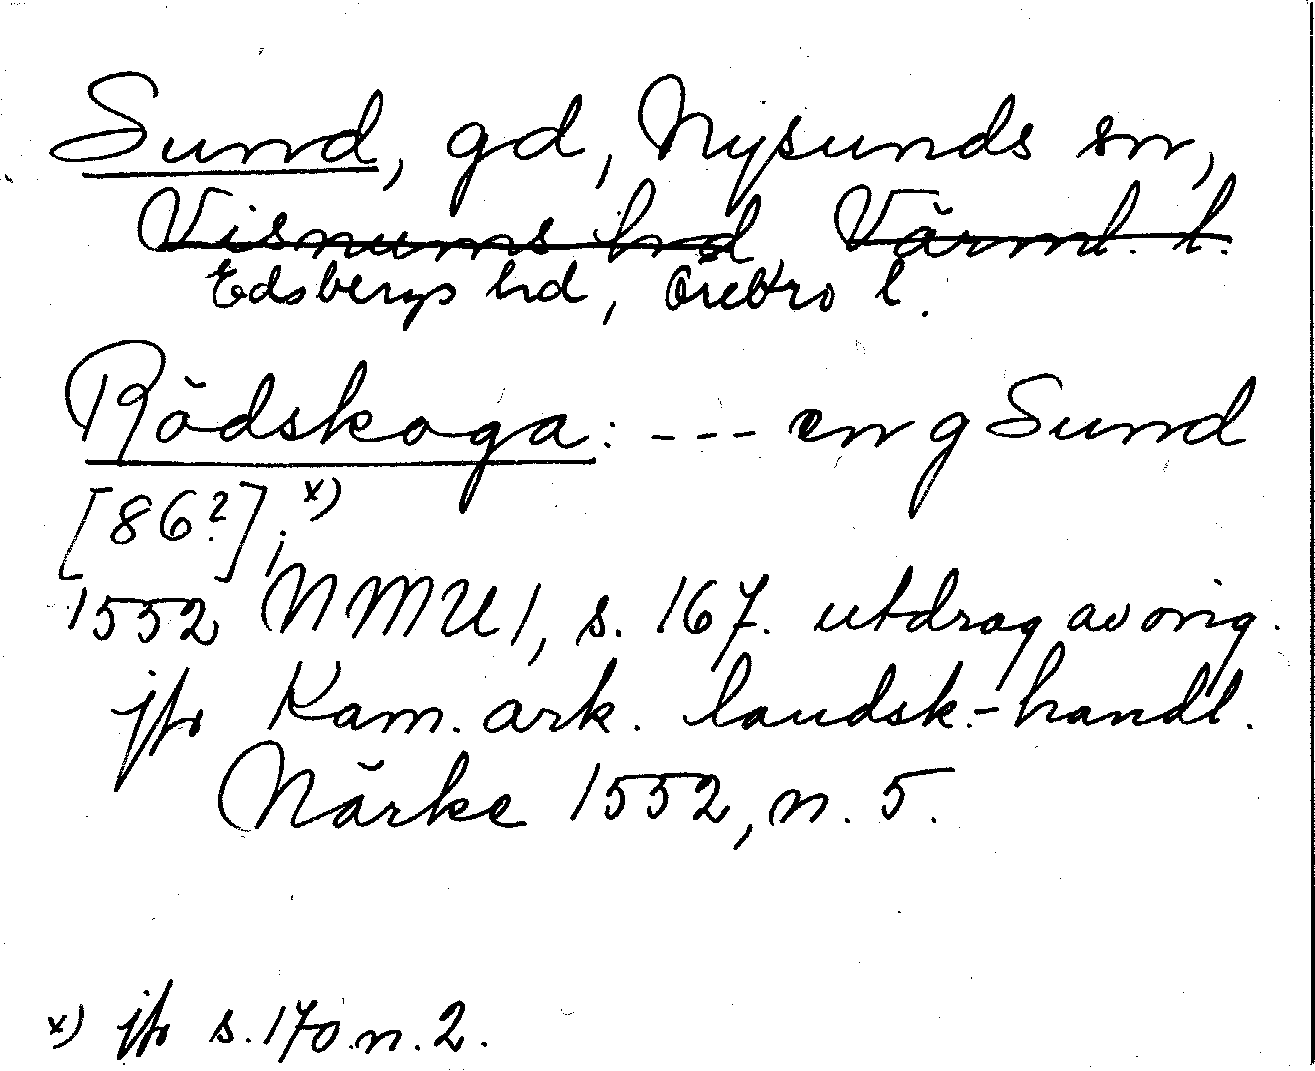 Sund, gd, Nysunds sn,
Visnums hd Värml. l.
Edsbergs hd, Örebro l.
Rödskoga: --- en g Sund
[86?];x)
1552 NMU 1, s. 167. utdrag av orig.
jfr Kam. ark. landsk.-handl.
Närke 1552, n. 5.
x) jfr s. 170 n. 2.